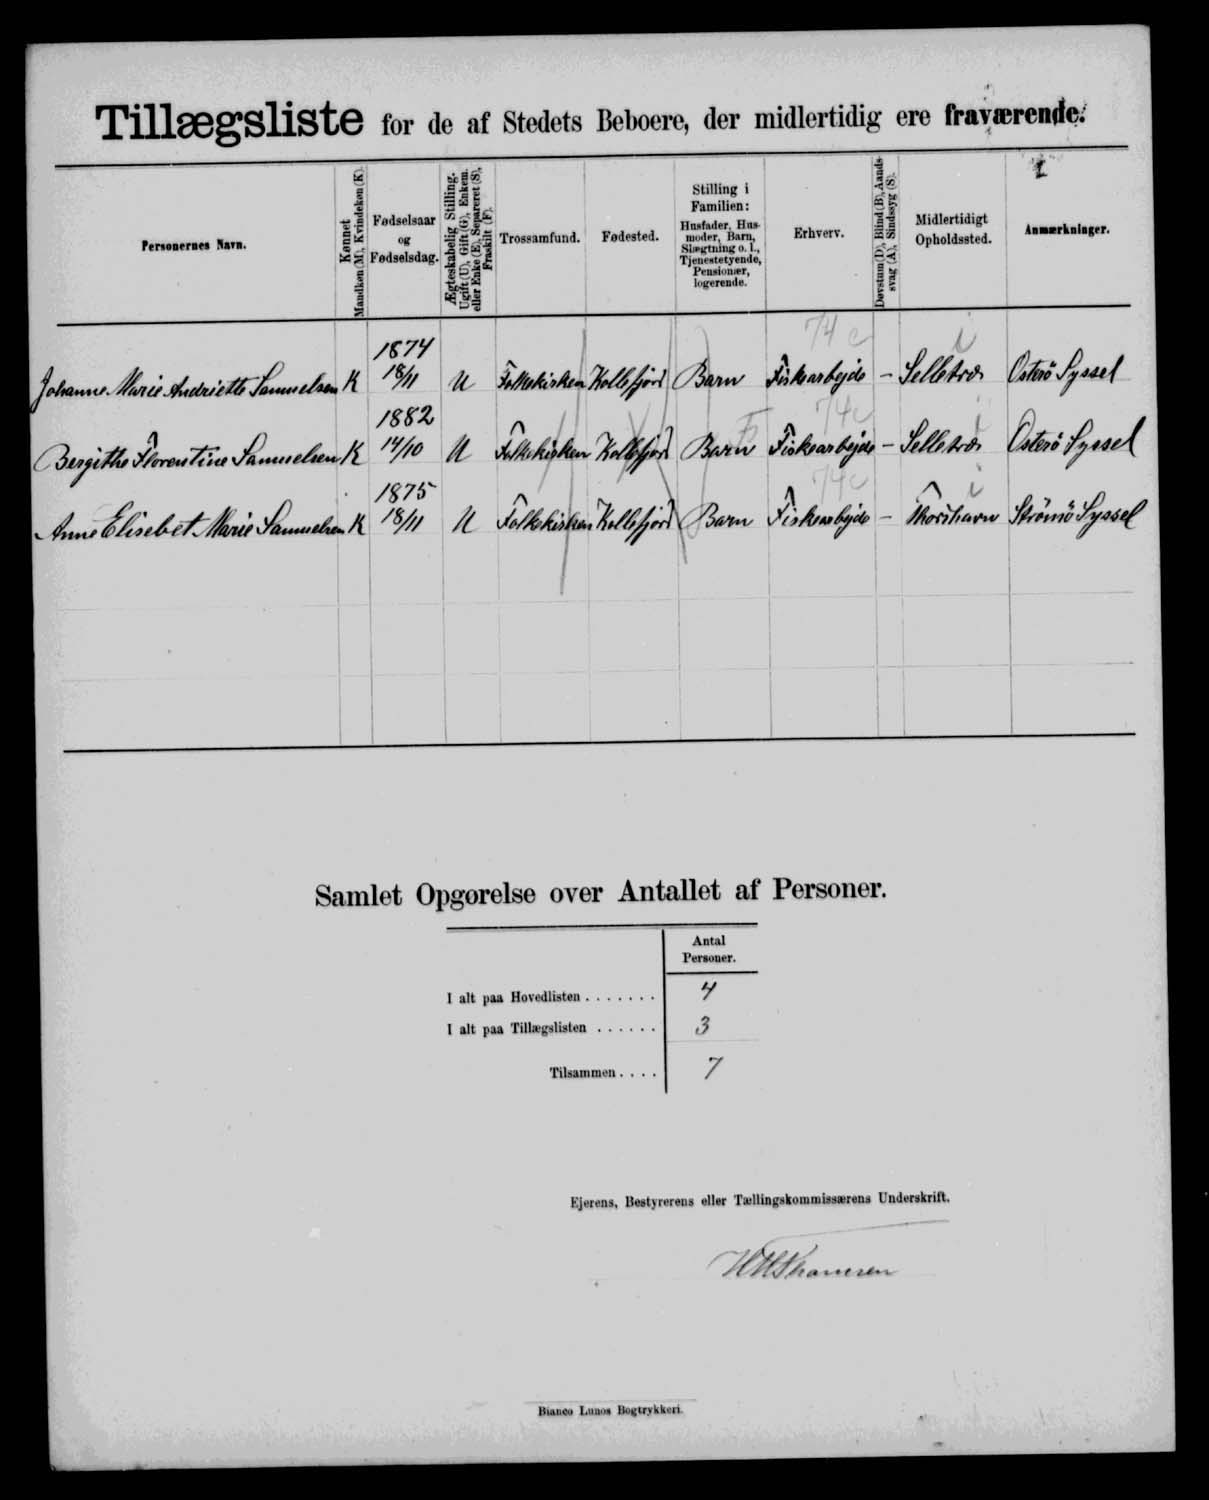 Tillægsliste for de af Stedets Beboere, der midlertidig ere fraværende.
Personernes Navn.
Kønnet
Mandkøn (M), Kvindekøn (K).
Fødselsaar
og
Fødselsdag.
Ægteskabelig Stilling.
Ugift (U), Gift (G), Enkem.
eller Enke (E), Separeret (S),
Fraskilt (F).
Trossamfund.
Fødested.
Stilling i
Familien:
Husfader, Hus-
moder, Barn,
Slægtning o. l.,
Tjenestetyende,
Pensionær,
logerende.
Erhverv.
Døvstum (D), Blind (B), Aands-
svag (A), Sindssyg (S).
Midlertidigt
Opholdssted.
Anmærkninger.
74 c i
1874
Johanne Marie Andriette Samuelsen K 18/11 U Folkekirken Kollefjord Barn Fiskearbejde - Selletræ Osterö Syssel
74c i
1882
Bergithe Florentine Samuelsen K 14/10 U Folkekirken Kollefjord Barn Fiskearbejde - Selletræ Osterö Syssel
74c i
1875
Anne Elisebet Marie Samuelsen K 18/11 U Folkekirken Kollefjord Barn Fiskearbejde - Thorshavn Strömö Syssel
Samlet Opgørelse over Antallet af Personer.
Antal
Personer.
I alt paa Hovedlisten . . . . . . . 4
I alt paa Tillægslisten . . . . . . 3
Tilsammen . . . . 7
Ejerens, Bestyrerens eller Tællingskommissærens Underskrift.
Thomsen
Bianco Lunos Bogtrykkeri.